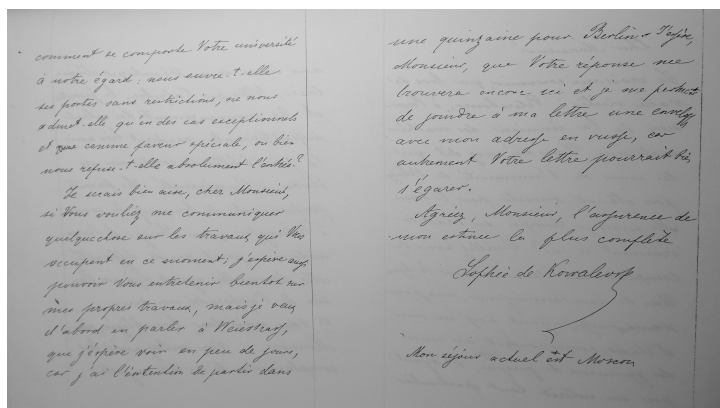 comment se comporte Votre université
à notre égard: nous ouvre-t-elle
ses portes sans restrictions, ne nous
admet-elle qu'en des cas exceptionnels
et comme faveur spéciale, ou bien
nous refuse-t-elle absolument l'entrée?
Je serais bien aise, cher Monsieur,
si Vous vouliez me communiquer
quelquechose sur les travaux qui Vous
occupent en ce moment; j'espère aussi
pouvoir Vous entretenir bientôt sur
mes propres travaux, mais je veux
d'abord en parler à Weierstrass,
que j'espère voir en peu de jours,
car j'ai l'intention de partir dans
une quinzaine pour Berlin. J'espère,
Monsieur, que Votre réponse me
trouvera encore ici et je me permets
de joindre à ma lettre une enveloppe
avec mon adresse en russe, car
autrement Votre lettre pourrait bien
s'égarer.
Agréez, Monsieur, l'assurence de
mon estime la plus complète
Sophie de Kowalevsky
Mon séjour actuel est Moscou